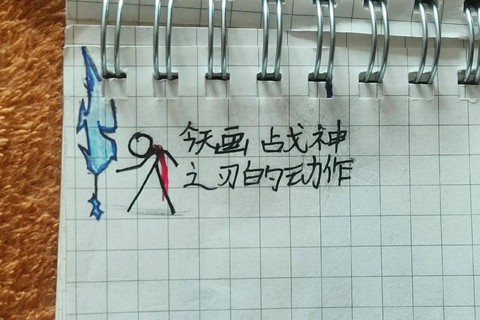 今天画战神
之刃的动作